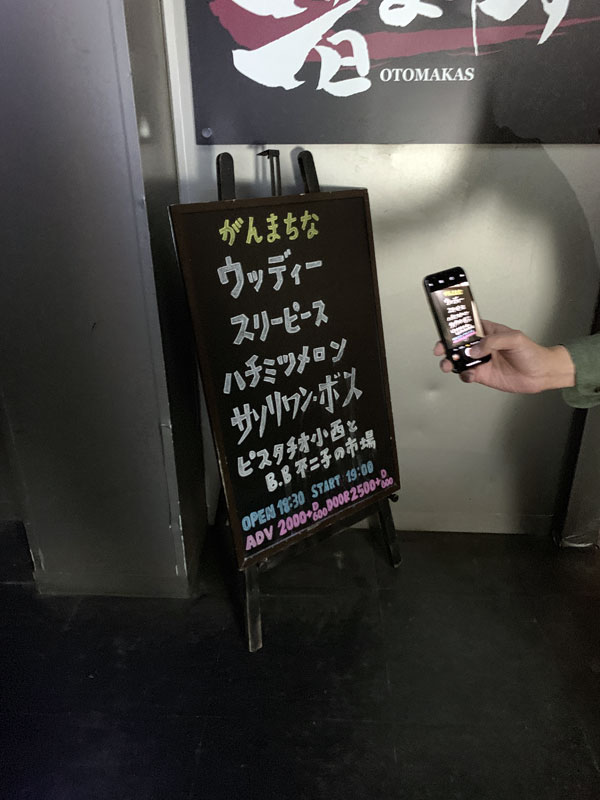 OTOMAKAS
がんまちな
ウッディー
スリーピース
ハチミツメロン
サソリワン・ボス
ピスタチオ小西と
B.B不二子の市場
OPEN 18:30 START 19:00
ADV 2000+D600 DOOR 2500+D600